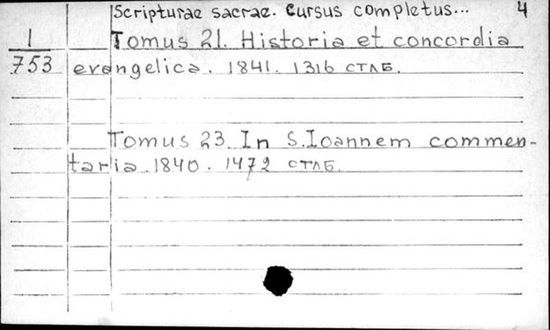 Scripturae sacrae. Cursus completus... 4
1
753
Tomus 21. Historia et concordia
evangelica. 1841. 1316 стлб.
Tomus 23. In S. Ioannem commen-
taria. 1840. 1472 стлб.